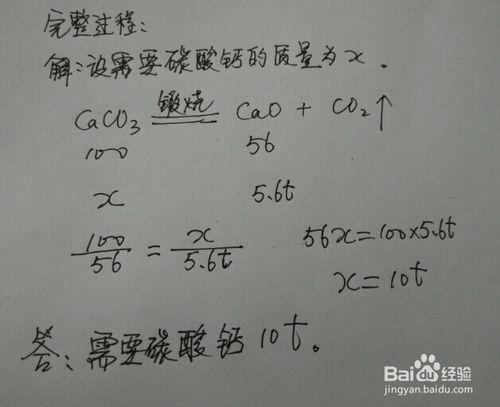 完整过程:
解:设需要碳酸钙的质量为x.
CaCO₃ 锻烧 CaO + CO₂↑
100 56
x 5.6t
100/56 = x/5.6t 56x=100×5.6t
x=10t
答:需要碳酸钙10t。
Baidu经验
jingyan.baidu.com